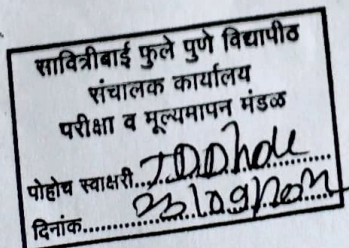 सावित्रीबाई फुले पुणे विद्यापीठ
संचालक कार्यालय
परीक्षा व मूल्यमापन मंडळ
पोहोच स्वाक्षरी...
दिनांक...